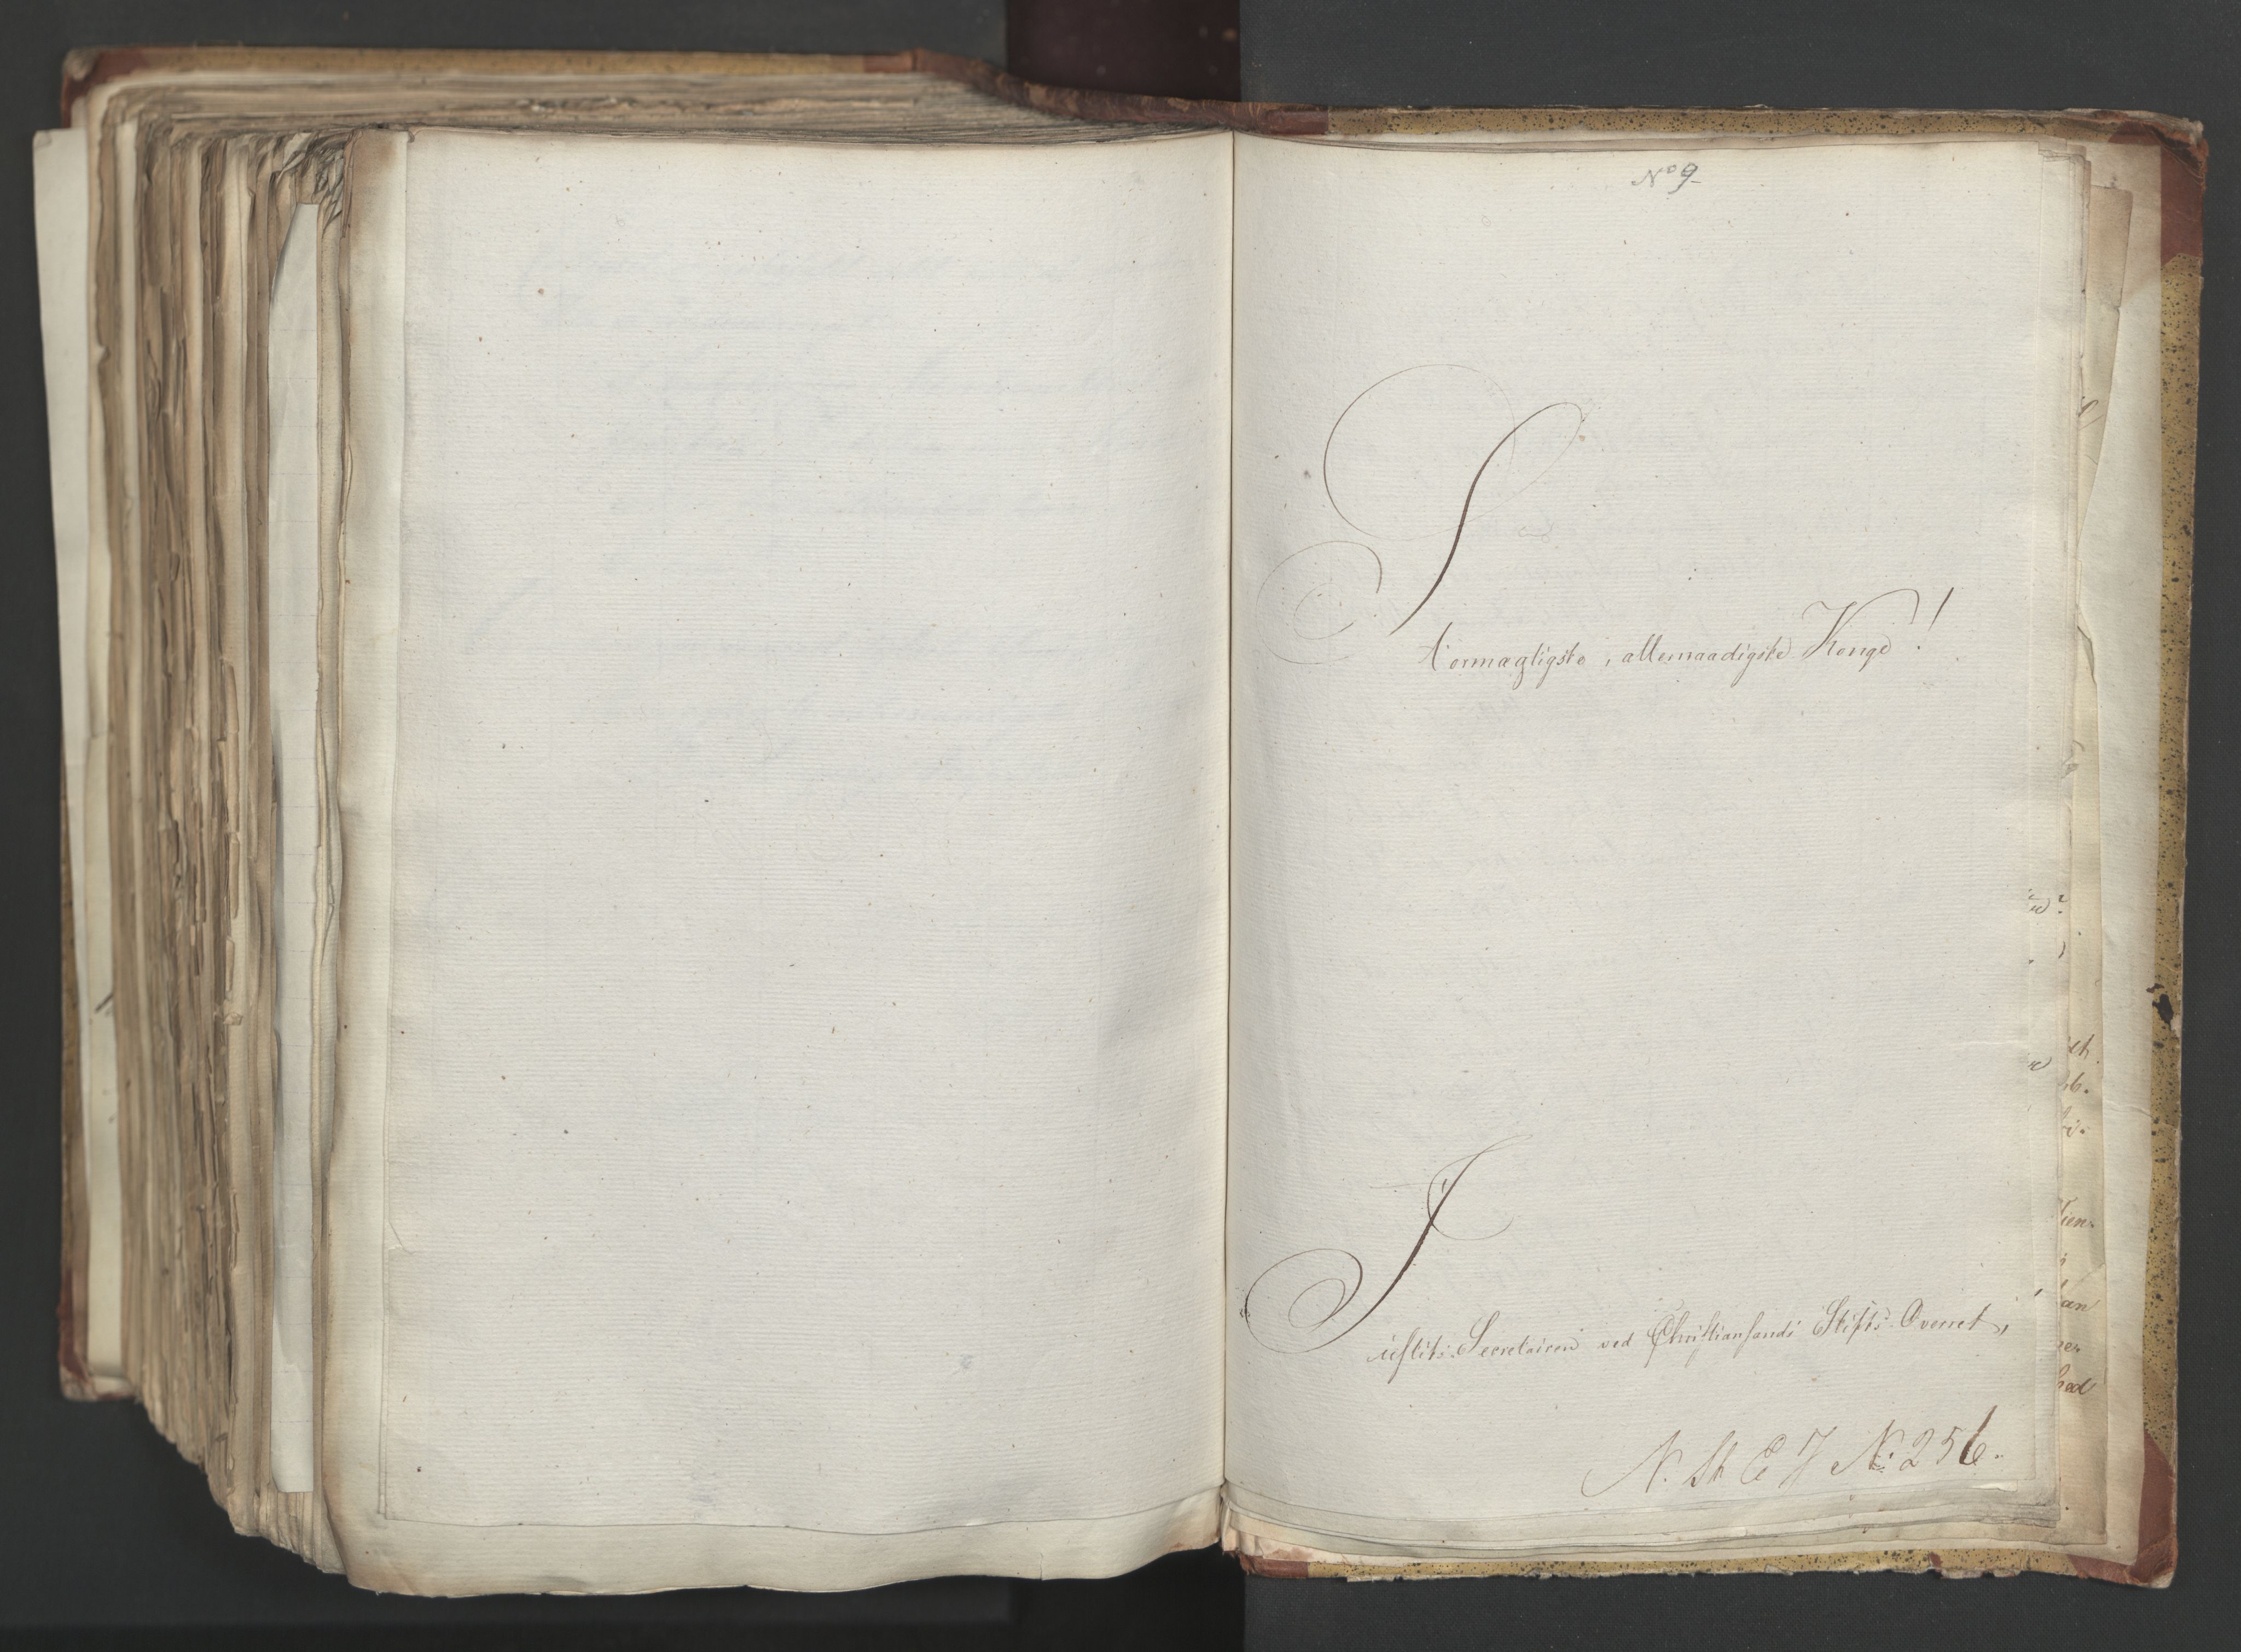 No 9
Stormægtigste, allernaadigste Konge!
Justits-Secretairen ved Christiansands Stifts-Overret,
N. St. E J No 256.